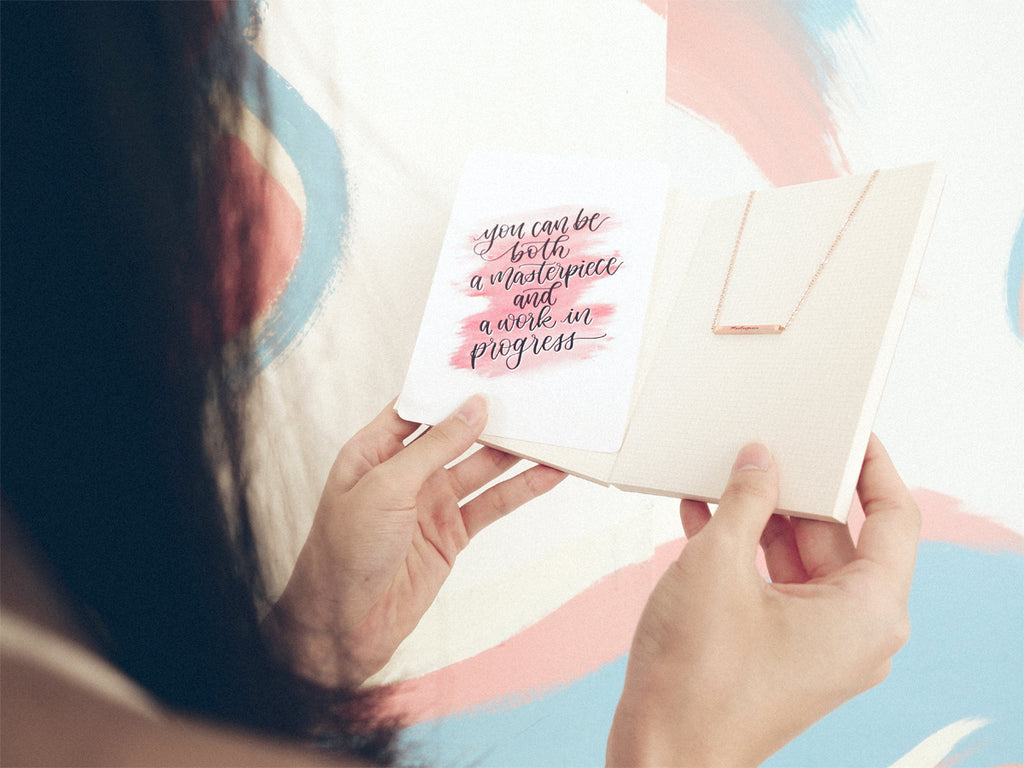 you can be
both
a masterpiece
and
a work in
progress